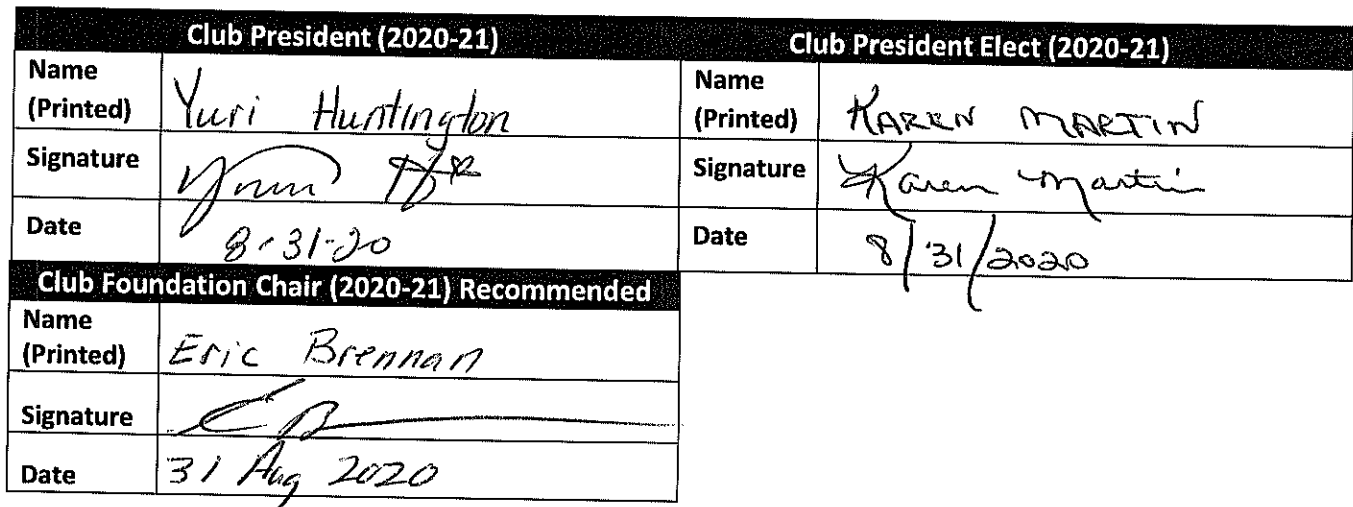 Club President (2020-21)
Name
(Printed)
Yuri Huntington
Signature
Date
8-31-20
Club President Elect (2020-21)
Name
(Printed)
KAREN MARTIN
Signature
Karen Martin
Date
8/31/2020
Club Foundation Chair (2020-21) Recommended
Name
(Printed)
Eric Brennan
Signature
Date
31 Aug 2020